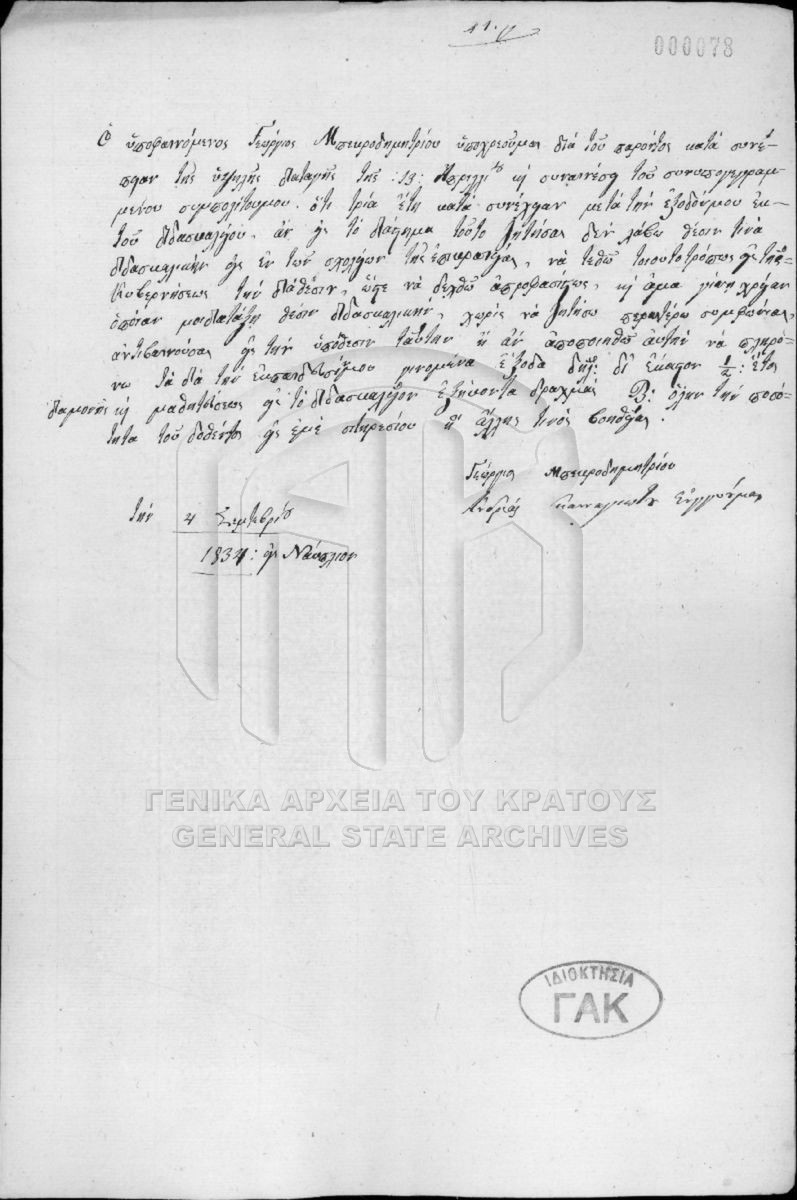 000078
Ὁ ὑποφαινόμενος Γεώργιος Μπεκροδημητρίου ὑποχρεοῦμαι διὰ τοῦ παρόντος κατὰ συνέ-
πειαν τῆς ὑψηλῆς διαταγῆς τῆς :13: Ἀπριλλίου καὶ συναινέσει τοῦ συνυπογεγραμ-
μένου συμπολίτου μου. ὅτι τρία ἔτη κατὰ συνέχειαν μετὰ τὴν ἔξοδόν μου ἐκ
τοῦ διδασκαλείου. ἂν εἰς τὸ διάστημα τοῦτο ζητήσας δὲν λάβω θέσιν τινὰ
διδασκαλικὴν εἰς ἓν τῶν σχολείων τῆς ἐπικρατείας, νὰ τεθῶ τοιουτοτρόπως εἰς τῆς
Κυβερνήσεως τὴν διάθεσιν, ὥστε νὰ δεχθῶ ἀπροφασίστως, καὶ ἅμα γίνῃ χρεία
ὁποίαν μοὶ διατάξῃ θέσιν διδασκαλικὴν, χωρὶς νὰ ζητήσω περαιτέρω συμφωνίας,
ἀντιβαινούσας εἰς τὴν ὑπόθεσιν ταύτην ἢ ἂν ἀποποιηθῶ αὐτὴν νὰ πληρό-
νω τὰ διὰ τὴν ἐκπαίδευσίν μου γινομένα ἔξοδα δηλ: δι' ἕκαστον 1/2: ἔτος
διαμονῆς καὶ μαθητεύσεως εἰς τὸ διδασκαλεῖον ἑξήκοντα δραχμάς Β: ὅλην τὴν ποσό-
τητα τοῦ δοθέντος εἰς ἐμὲ σιτηρεσίου ἢ ἄλλης τινὸς βοηθείας.
Γεώργιος Μπεκροδημητρίου
τὴν 4 Σεπτεβρίου
1834: εἰς Ναύπλιον
ΓΕΝΙΚΑ ΑΡΧΕΙΑ ΤΟΥ ΚΡΑΤΟΥΣ
GENERAL STATE ARCHIVES
ΙΔΙΟΚΤΗΣΙΑ
ΓΑΚ